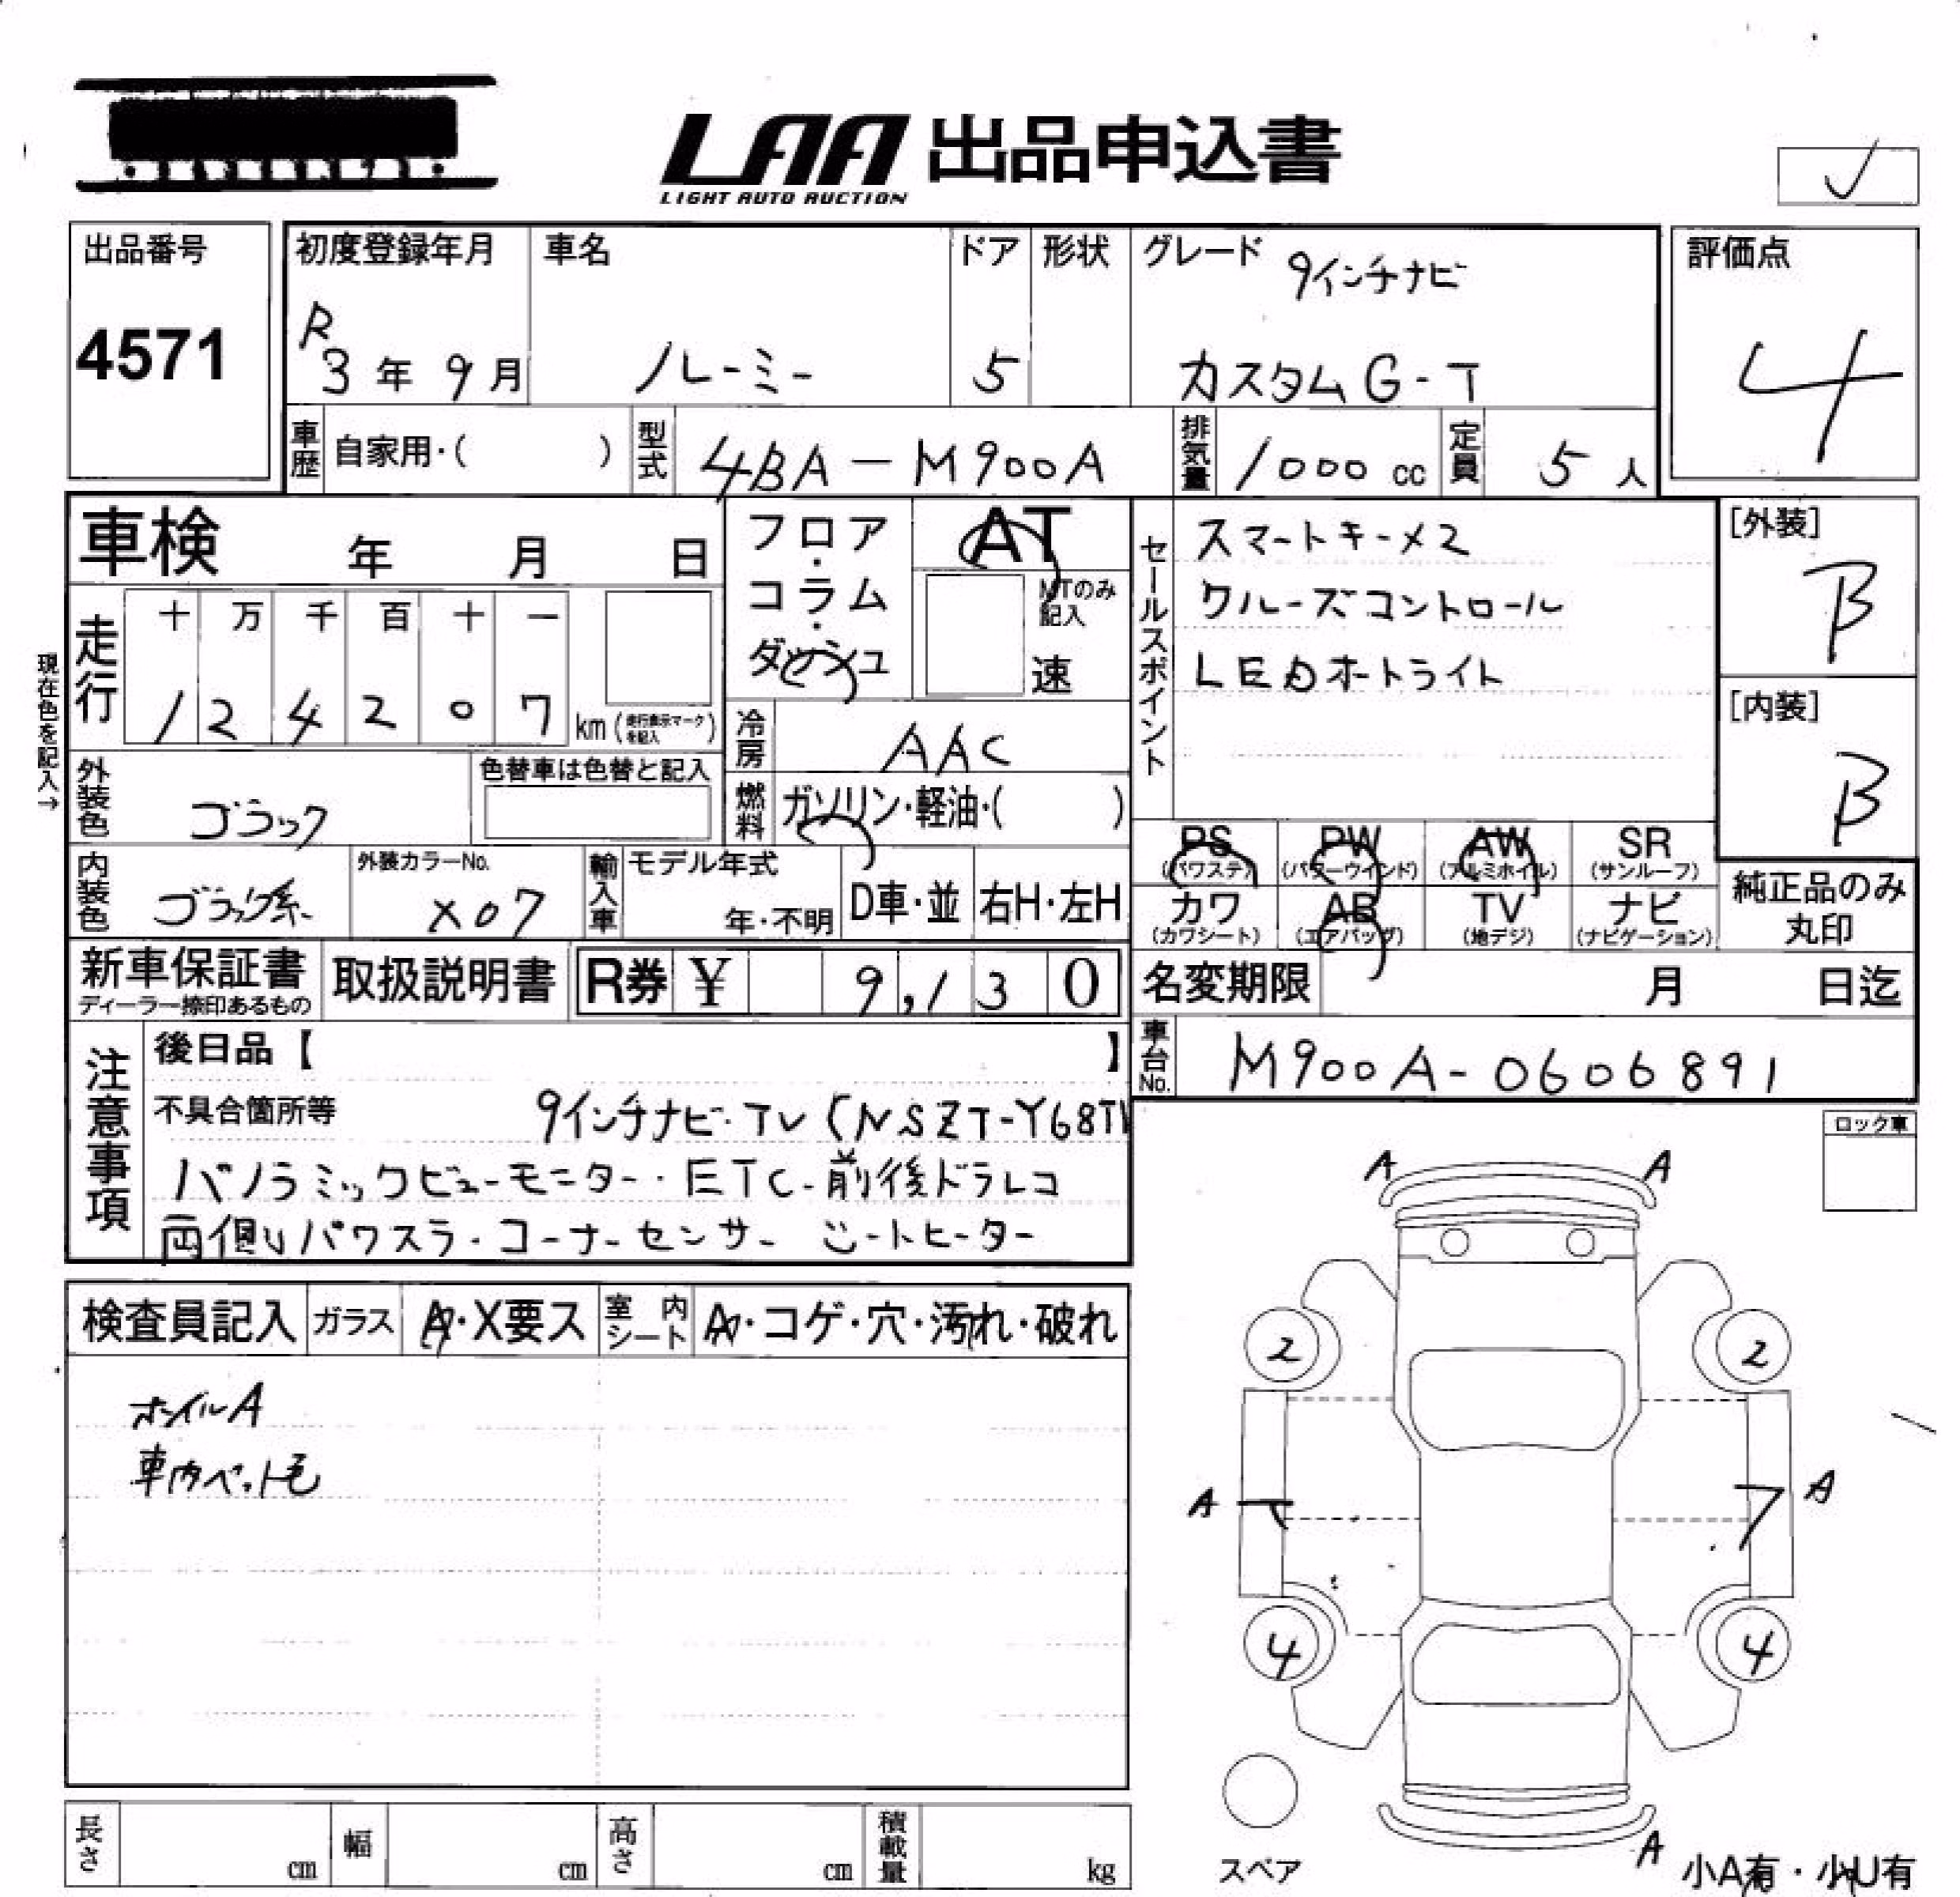 LAA 出品申込書
LIGHT AUTO AUCTION
出品番号
4571
初度登録年月
R3年9月
車名
ルーミー
ドア
5
形状
グレード
9インチナビ
カスタムG-T
評価点
4
車歴 自家用・( )
型式 4BA-M900A
排気量 1000 cc
定員 5人
車検 年 月 日
走行
十 万 千 百 十 一
1 2 4 2 0 7 km (走行表示マークを記入)
現在色を記入→
外装色 ブラック
色替車は色替と記入
内装色 ブラック系
外装カラーNo.
X07
フロア・コラム・ダッシュ
AT
MTのみ記入
速
冷房 AAC
燃料 ガソリン・軽油・( )
輸入車 モデル年式
年・不明
D車・並
右H・左H
セールスポイント
スマートキー×2
クルーズコントロール
LEDオートライト
[外装]
B
[内装]
B
PS (パワステ)
PW (パワーウインド)
AW (アルミホイル)
SR (サンルーフ)
カワ (カワシート)
AB (エアバッグ)
TV (地デジ)
ナビ (ナビゲーション)
純正品のみ丸印
新車保証書
ディーラー捺印あるもの
取扱説明書
R券 ¥ 9,130
名変期限 月 日迄
車台No. M900A-0606891
注意事項
後日品【 】
不具合箇所等
9インチナビ・TV (NSZT-Y68T
パノラミックビューモニター・ETC・前後ドラレコ
両側パワスラ・コーナーセンサー シートヒーター
ロック車
検査員記入
ガラス A・X要ス
室内シート A・コゲ・穴・汚れ・破れ
ホイルA
車内ペット毛
A A
2 2
A A
4 4
A
スペア
小A有・小U有
長さ cm
幅 cm
高さ cm
積載量 kg